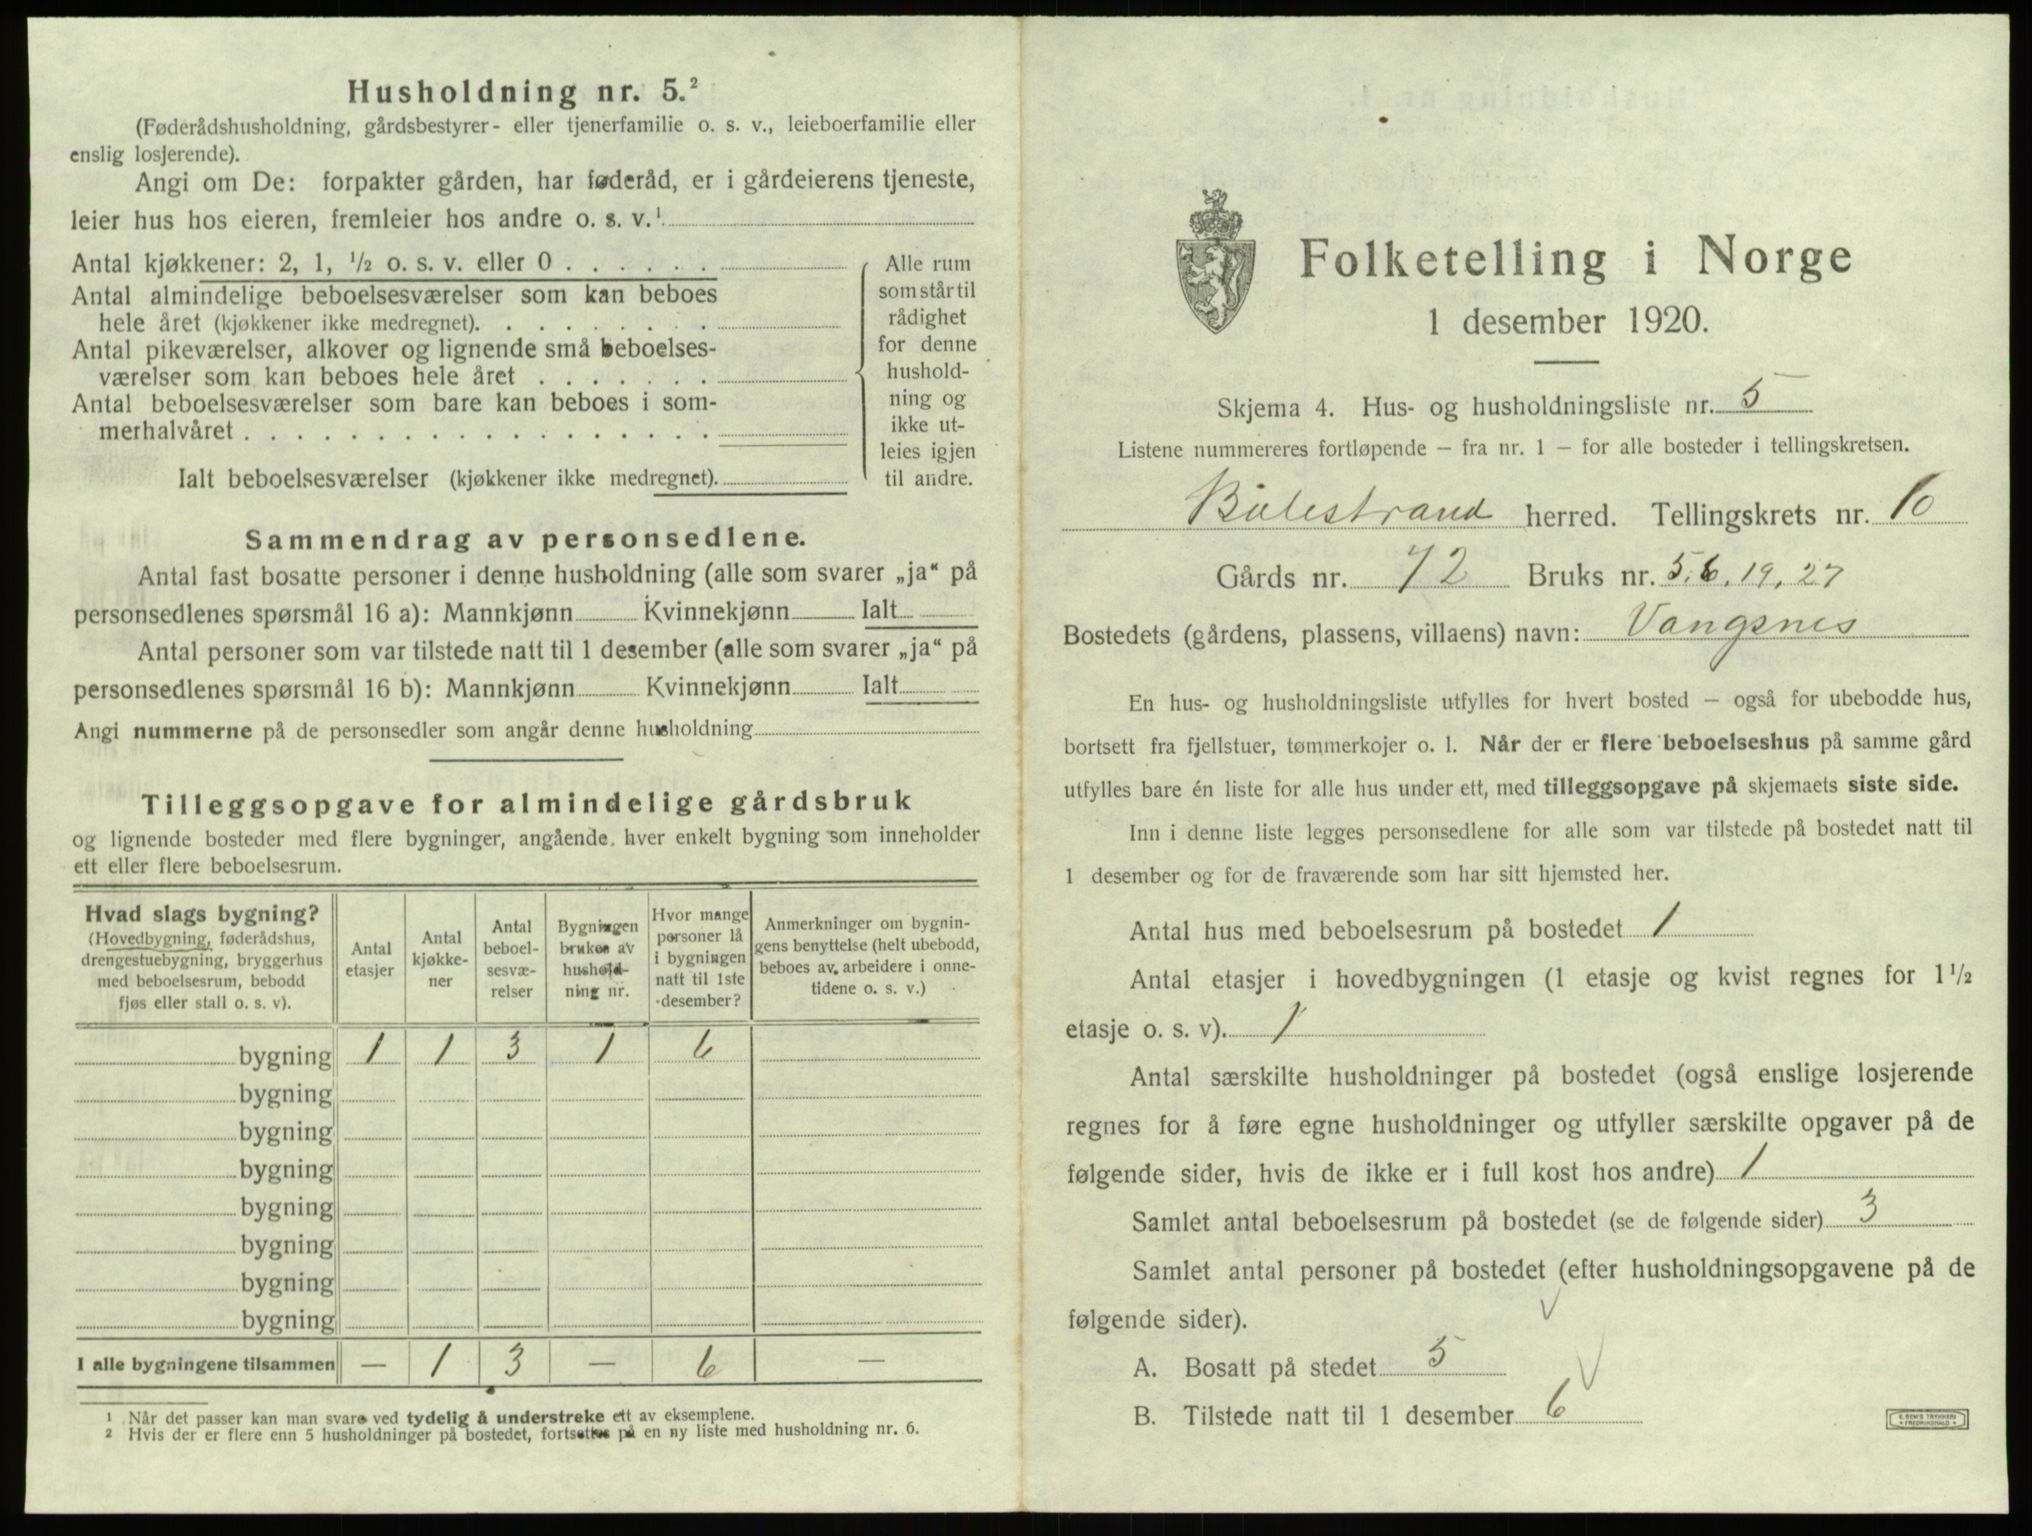 Husholdning nr. 5.²
(Føderådshusholdning, gårdsbestyrer- eller tjenerfamilie o. s. v., leieboerfamilie eller
enslig losjerende).
Angi om De: forpakter gården, har føderåd, er i gårdeierens tjeneste,
leier hus hos eieren, fremleier hos andre o. s. v.¹
Antal kjøkkener: 2, 1, ½ o. s. v. eller 0
Antal almindelige beboelsesværelser som kan beboes
hele året (kjøkkener ikke medregnet).
Antal pikeværelser, alkover og lignende små beboelses-
værelser som kan beboes hele året
Antal beboelsesværelser som bare kan beboes i som-
merhalvåret
Ialt beboelsesværelser (kjøkkener ikke medregnet).
Alle rum
som står til
rådighet
for denne
hushold-
ning og
ikke ut-
leies igjen
til andre.
Sammendrag av personsedlene.
Antal fast bosatte personer i denne husholdning (alle som svarer „ja“ på
personsedlenes spørsmål 16 a): Mannkjønn Kvinnekjønn Ialt
Antal personer som var tilstede natt til 1 desember (alle som svarer „ja“ på
personsedlenes spørsmål 16 b): Mannkjønn Kvinnekjønn Ialt
Angi nummerne på de personsedler som angår denne husholdning
Tilleggsopgave for almindelige gårdsbruk
og lignende bosteder med flere bygninger, angående hver enkelt bygning som inneholder
ett eller flere beboelsesrum.
Hvad slags bygning?
(Hovedbygning, føderådshus,
drengestuebygning, bryggerhus
med beboelsesrum, bebodd
fjøs eller stall o. s. v).
Antal
etasjer
Antal
kjøkke-
ner
Antal
beboel-
sesvæ-
relser
Bygningen
brukes av
hushold-
ning nr.
Hvor mange
personer lå
i bygningen
natt til 1ste
desember?
Anmerkninger om bygnin-
gens benyttelse (helt ubebodd,
beboes av arbeidere i onne-
tidene o. s. v.)
bygning 1 1 3 1 6
bygning
bygning
bygning
bygning
bygning
bygning
bygning
I alle bygningene tilsammen — 1 3 — 6 —
¹ Når det passer kan man svare ved tydelig å understreke ett av eksemplene.
² Hvis der er flere enn 5 husholdninger på bostedet, fortsettes på en ny liste med husholdning nr. 6.
Folketelling i Norge
1 desember 1920.
Skjema 4. Hus- og husholdningsliste nr. 5
Listene nummereres fortløpende – fra nr. 1 – for alle bosteder i tellingskretsen.
Balestrand herred. Tellingskrets nr. 10
Gårds nr. 72 Bruks nr. 5, 6, 19, 27
Bostedets (gårdens, plassens, villaens) navn: Vangsnes
En hus- og husholdningsliste utfylles for hvert bosted – også for ubebodde hus,
bortsett fra fjellstuer, tømmerkojer o. l. Når der er flere beboelseshus på samme gård
utfylles bare én liste for alle hus under ett, med tilleggsopgave på skjemaets siste side.
Inn i denne liste legges personsedlene for alle som var tilstede på bostedet natt til
1 desember og for de fraværende som har sitt hjemsted her.
Antal hus med beboelsesrum på bostedet 1
Antal etasjer i hovedbygningen (1 etasje og kvist regnes for 1½
etasje o. s. v). 1
Antal særskilte husholdninger på bostedet (også enslige losjerende
regnes for å føre egne husholdninger og utfyller særskilte opgaver på de
følgende sider, hvis de ikke er i full kost hos andre) 1
Samlet antal beboelsesrum på bostedet (se de følgende sider) 3
Samlet antal personer på bostedet (efter husholdningsopgavene på de
følgende sider).
A. Bosatt på stedet 5
B. Tilstede natt til 1 desember 6